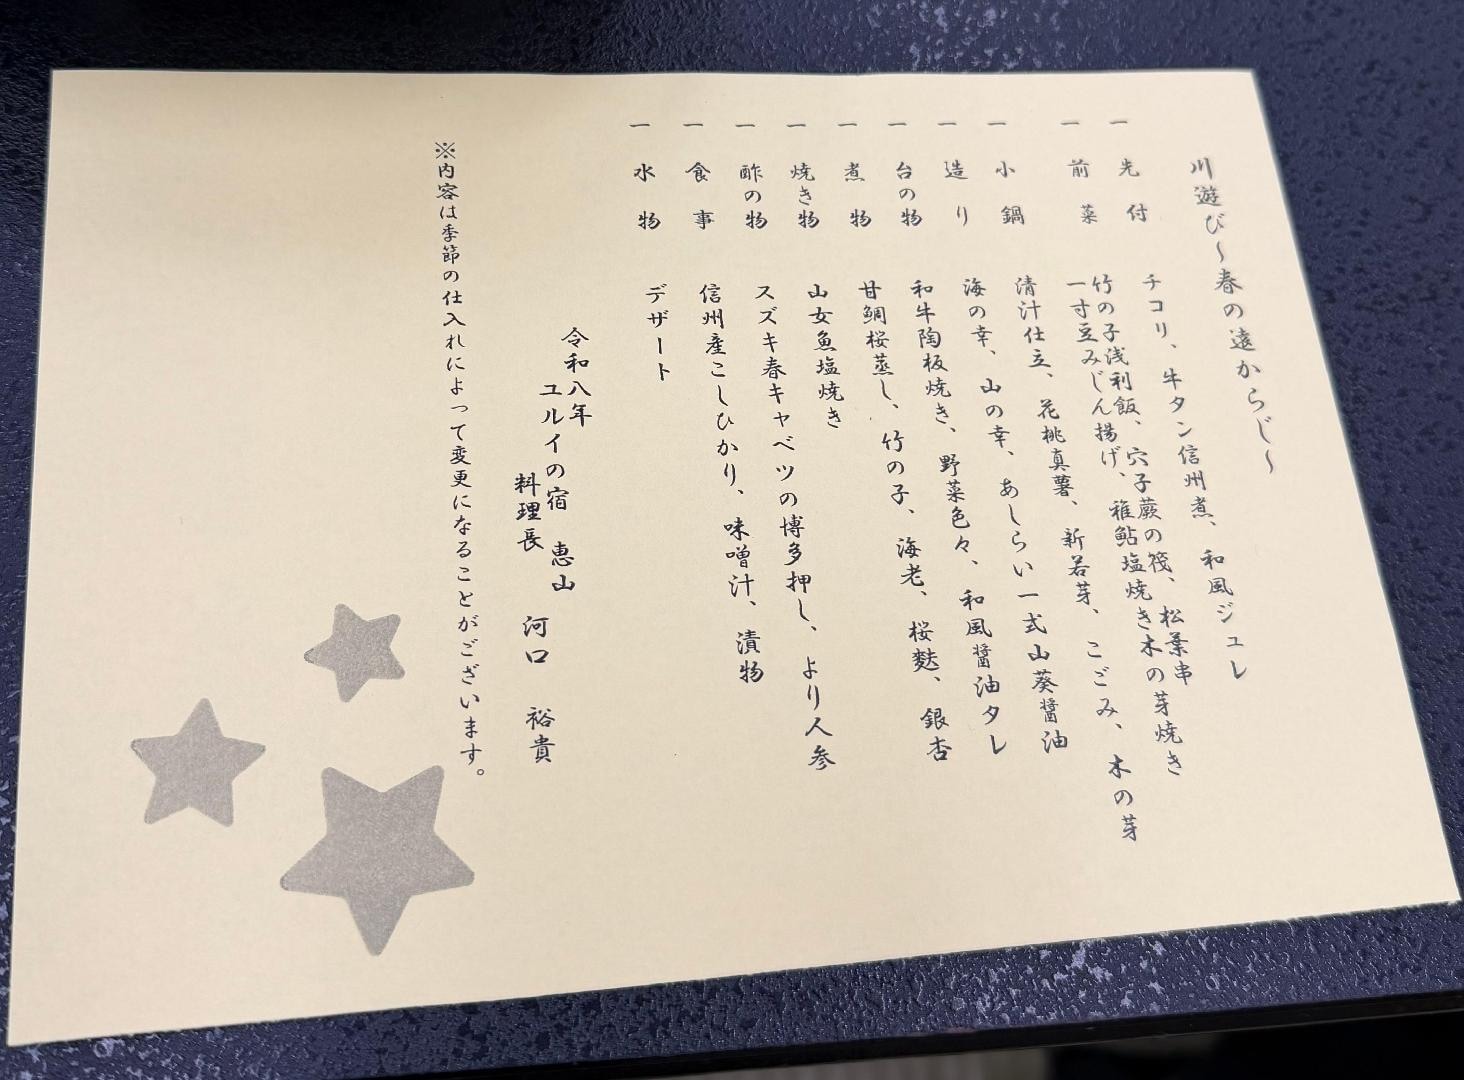 川遊び～春の遠からじ～
一 先付 チコリ、牛タン信州煮、和風ジュレ
一 前菜 竹の子浅利飯、穴子蕨の筏、松葉串
一寸豆みじん揚げ、稚鮎塩焼き木の芽焼き
一 小鍋 清汁仕立、花桃真薯、新若芽、こごみ、木の芽
一 造り 海の幸、山の幸、あしらい一式山葵醤油
一 台の物 和牛陶板焼き、野菜色々、和風醤油タレ
一 煮物 甘鯛桜蒸し、竹の子、海老、桜麩、銀杏
一 焼き物 山女魚塩焼き
一 酢の物 スズキ春キャベツの博多押し、より人参
一 食事 信州産こしひかり、味噌汁、漬物
一 水物 デザート
令和八年
ユルイの宿 恵山
料理長 河口 裕貴
※内容は季節の仕入れによって変更になることがございます。